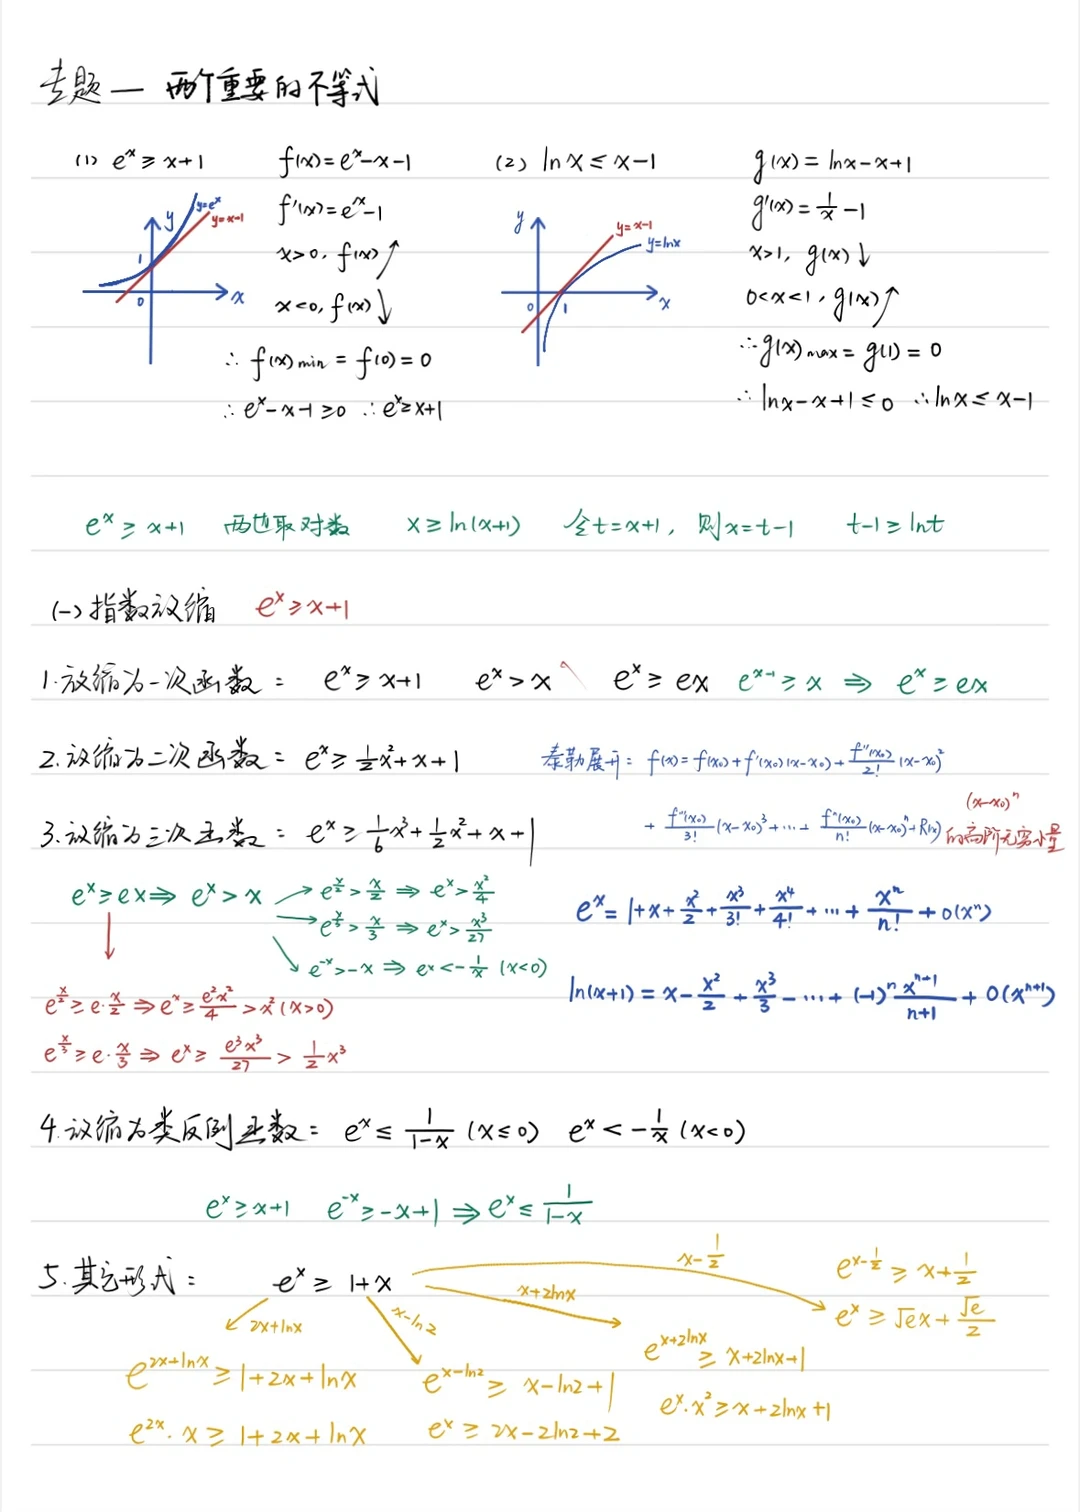 专题一 两个重要的不等式
(1) eˣ ≥ x+1
f(x) = eˣ-x-1
f'(x) = eˣ-1
x>0, f(x)↗
x<0, f(x)↘
∴ f(x)min = f(0) = 0
∴ eˣ-x-1 ≥ 0 ∴ eˣ ≥ x+1
y
y=eˣ
y=x+1
1
0
x
(2) ln x ≤ x-1
g(x) = lnx-x+1
g'(x) = 1/x -1
x>1, g(x)↓
0<x<1, g(x)↗
∴ g(x)max = g(1) = 0
∴ lnx-x+1 ≤ 0 ∴ lnx ≤ x-1
y
y=x-1
y=lnx
0
1
x
eˣ ≥ x+1 两边取对数 x ≥ ln(x+1) 令t=x+1, 则x=t-1 t-1 ≥ lnt
(一) 指数放缩 eˣ ≥ x+1
1.放缩为一次函数: eˣ ≥ x+1 eˣ > x eˣ ≥ ex eˣ⁻¹ ≥ x ⇒ eˣ ≥ ex
2.放缩为二次函数: eˣ ≥ 1/2 x²+x+1
泰勒展开: f(x) = f(x₀)+f'(x₀)(x-x₀)+ f''(x₀)/2! (x-x₀)²
+ f'''(x₀)/3! (x-x₀)³+…+ fⁿ(x₀)/n! (x-x₀)ⁿ+R(x)
(x-x₀)ⁿ
的高阶无穷小量
3.放缩为三次函数: eˣ ≥ 1/6 x³+ 1/2 x²+x+1
eˣ ≥ ex ⇒ eˣ > x
e^(x/2) > x/2 ⇒ eˣ > x²/4
e^(x/3) > x/3 ⇒ eˣ > x³/27
e⁻ˣ > -x ⇒ eˣ < -1/x (x<0)
e^(x/2) ≥ e·x/2 ⇒ eˣ ≥ e²x²/4 > x² (x>0)
e^(x/3) ≥ e·x/3 ⇒ eˣ ≥ e³x³/27 > 1/2 x³
eˣ = 1+x+ x²/2 + x³/3! + x⁴/4! +…+ xⁿ/n! + o(xⁿ)
ln(x+1) = x- x²/2 + x³/3 -…+ (-1)ⁿ xⁿ⁺¹/(n+1) + o(xⁿ⁺¹)
4.放缩为类反例函数: eˣ ≤ 1/(1-x) (x≤0) eˣ < -1/x (x<0)
eˣ ≥ x+1 e⁻ˣ ≥ -x+1 ⇒ eˣ ≤ 1/(1-x)
5.其它形式: eˣ ≥ 1+x
2x+lnx
e^(2x+lnx) ≥ 1+2x+lnx
e²ˣ·x ≥ 1+2x+lnx
x-ln2
e^(x-ln2) ≥ x-ln2+1
eˣ ≥ 2x-2ln2+2
x+2lnx
e^(x+2lnx) ≥ x+2lnx+1
eˣ·x² ≥ x+2lnx+1
x- 1/2
e^(x-1/2) ≥ x+ 1/2
eˣ ≥ √e x+ √e/2